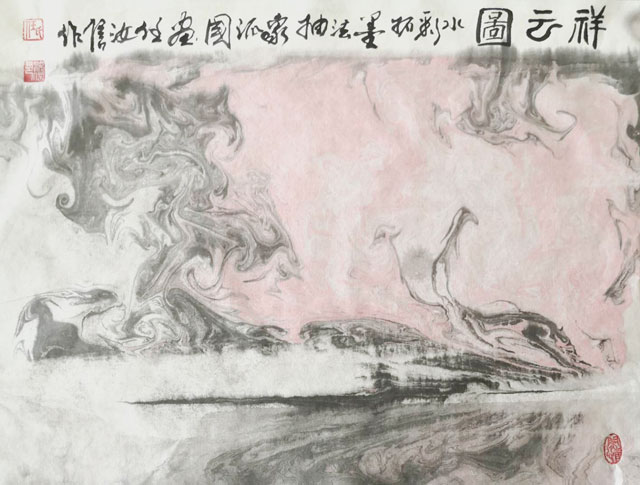 祥云圖 水彩拓墨法抽象派国画 任汝信作